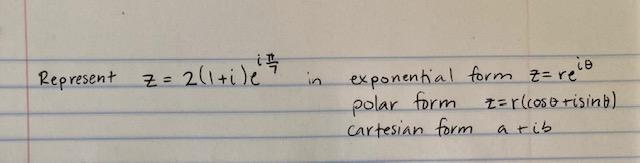 Represent z = 2(1+i)e^{iπ/7} in exponential form z=re^{iθ}
polar form z=r(cosθ+isinθ)
cartesian form a+ib